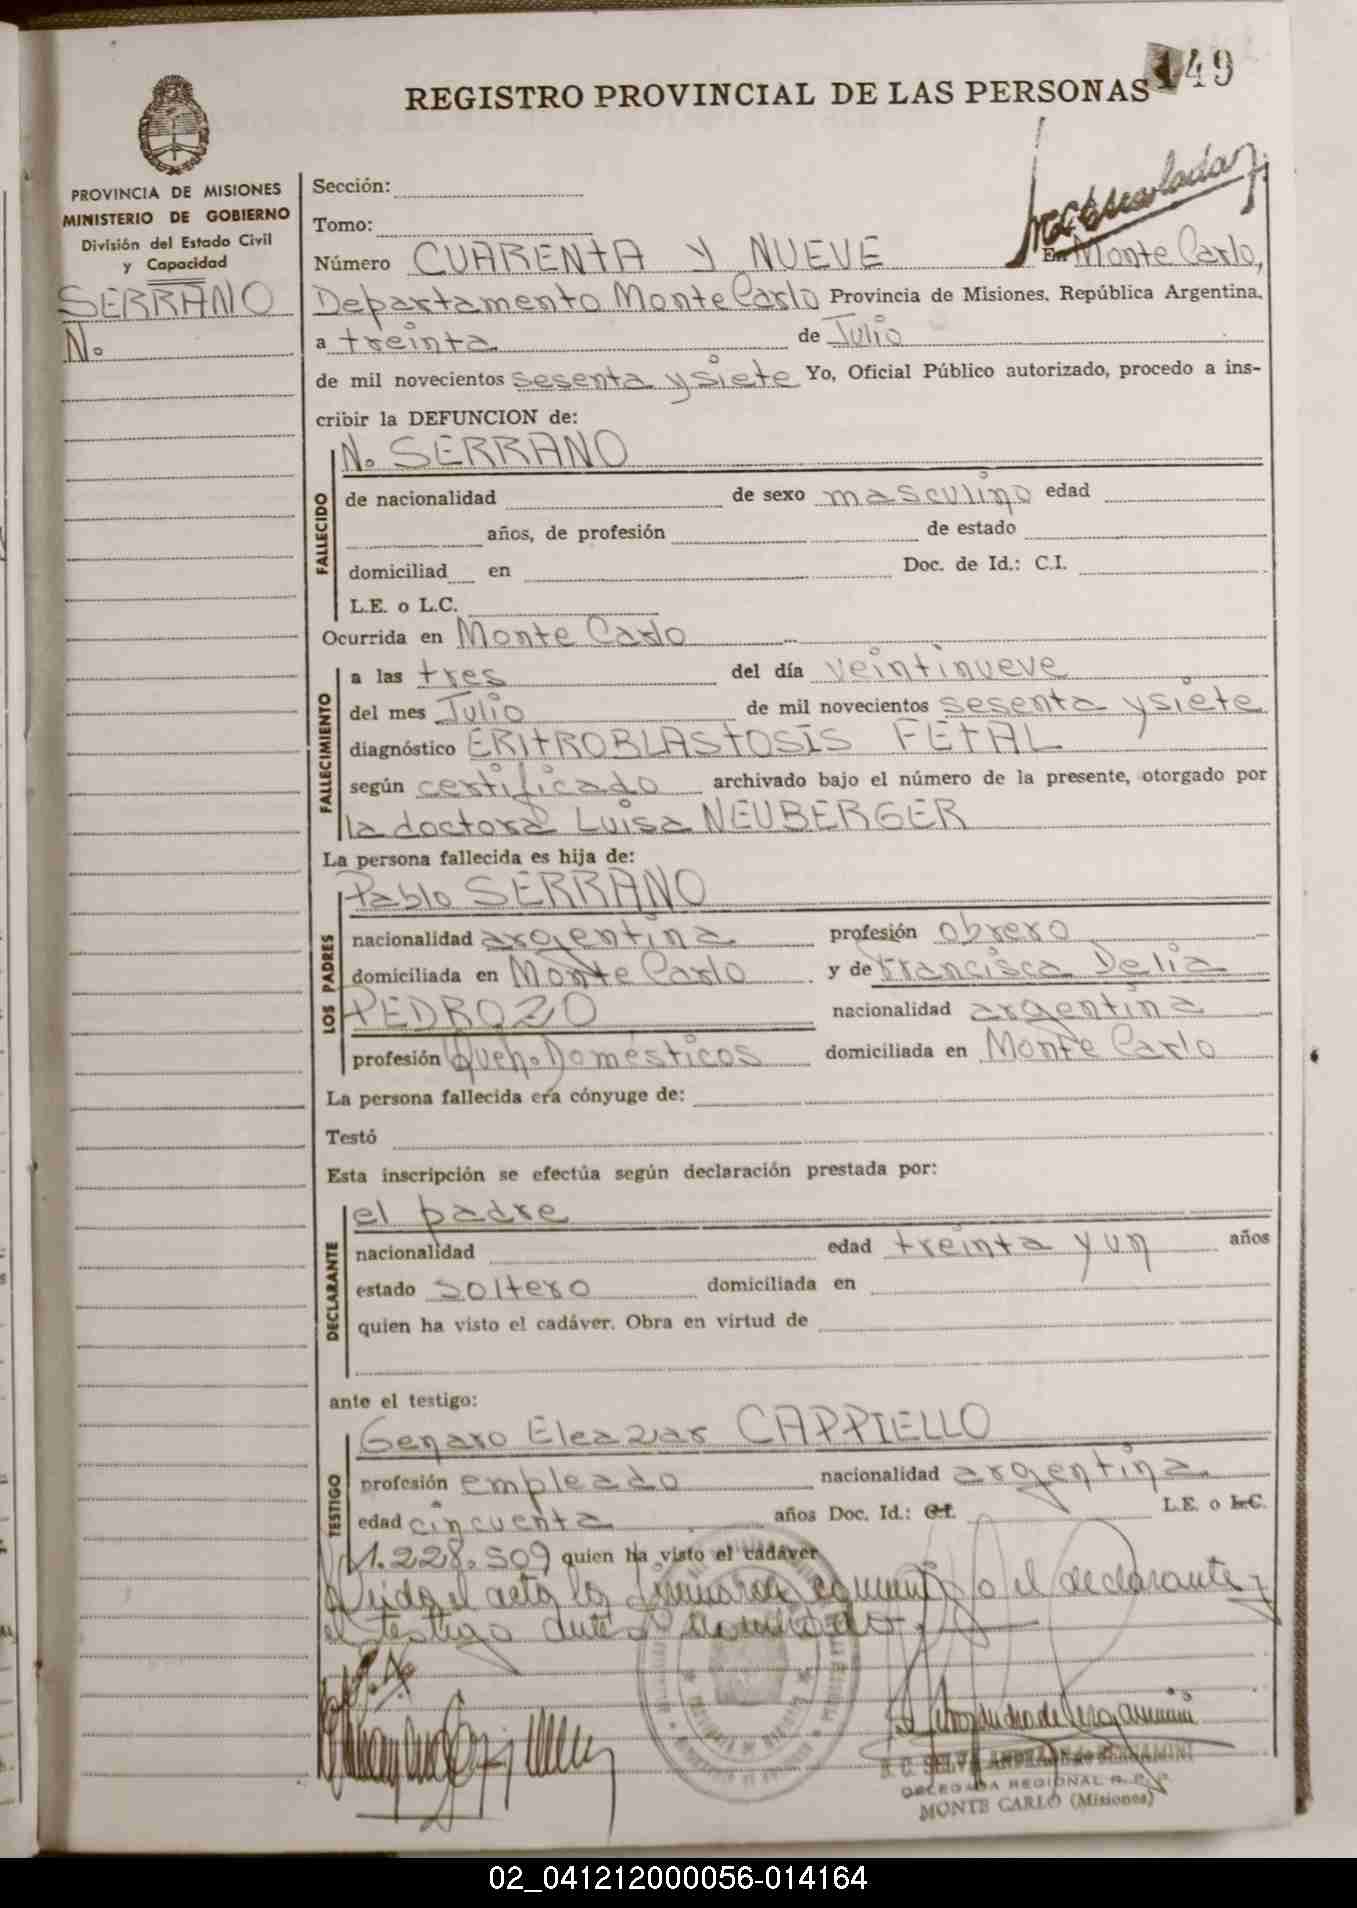 149
REGISTRO PROVINCIAL DE LAS PERSONAS
PROVINCIA DE MISIONES
MINISTERIO DE GOBIERNO
División del Estado Civil
y Capacidad
SERRANO
N.
Sección:
Tomo:
Número CUARENTA Y NUEVE En Monte Carlo,
Departamento Monte Carlo Provincia de Misiones, República Argentina,
a treinta de Julio
de mil novecientos sesenta y siete Yo, Oficial Público autorizado, procedo a ins-
cribir la DEFUNCION de:
N. SERRANO
FALLECIDO
de nacionalidad de sexo masculino edad
años, de profesión de estado
domiciliad en Doc. de Id.: C.I.
L.E. o L.C.
Ocurrida en Monte Carlo
FALLECIMIENTO
a las tres del día veintinueve
del mes Julio de mil novecientos sesenta y siete
diagnóstico ERITROBLASTOSIS FETAL
según certificado archivado bajo el número de la presente, otorgado por
la doctora Luisa NEUBERGER
La persona fallecida es hija de:
LOS PADRES
Pablo SERRANO
nacionalidad argentina profesión obrero
domiciliada en Monte Carlo y de Francisca Delia
PEDROZO nacionalidad argentina
profesión Queh. Domésticos domiciliada en Monte Carlo
La persona fallecida era cónyuge de:
Testó
Esta inscripción se efectúa según declaración prestada por:
DECLARANTE
el padre
nacionalidad edad treinta y un años
estado soltero domiciliada en
quien ha visto el cadáver. Obra en virtud de
ante el testigo:
TESTIGO
Genaro Eleazar CAPPIELLO
profesión empleado nacionalidad argentina
edad cincuenta años Doc. Id.: C.I. L.E. o L.C.
1.228.509 quien ha visto el cadáver
Leida el acta la conmigo el declarante y
el testigo ante
DELEGADA REGIONAL R.P.
MONTE CARLO (Misiones)
02_041212000056-014164